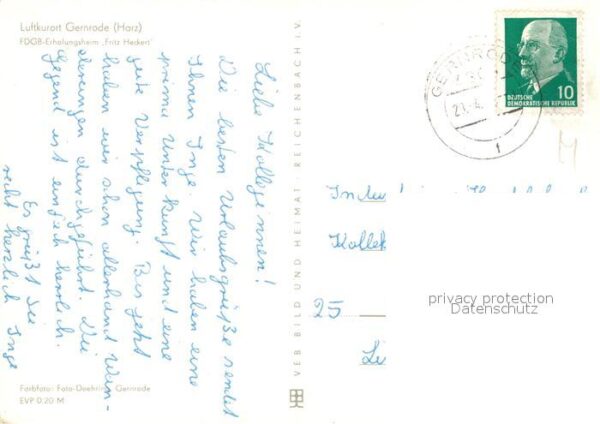 Luftkurort Gernrode (Harz)
FDGB-Erholungsheim „Fritz Heckert"
Liebe Kolleginnen!
Die besten Urlaubsgrüße sendet
Ihnen Inge. Wir haben eine
prima Unterkunft und eine
gute Verpflegung. Bis jetzt
haben wir schon allerhand Wan-
derungen durchgeführt. Die
Gegend ist einfach herrlich.
Es grüßt Sie
recht herzlich Inge
Farbfoto: Foto-Doehring, Gernrode
EVP 0,20 M
VEB BILD UND HEIMAT · REICHENBACH i. V.
GERNRODE
21.4.
1
DEUTSCHE
DEMOKRATISCHE REPUBLIK
10
Kollek
25
privacy protection
Datenschutz